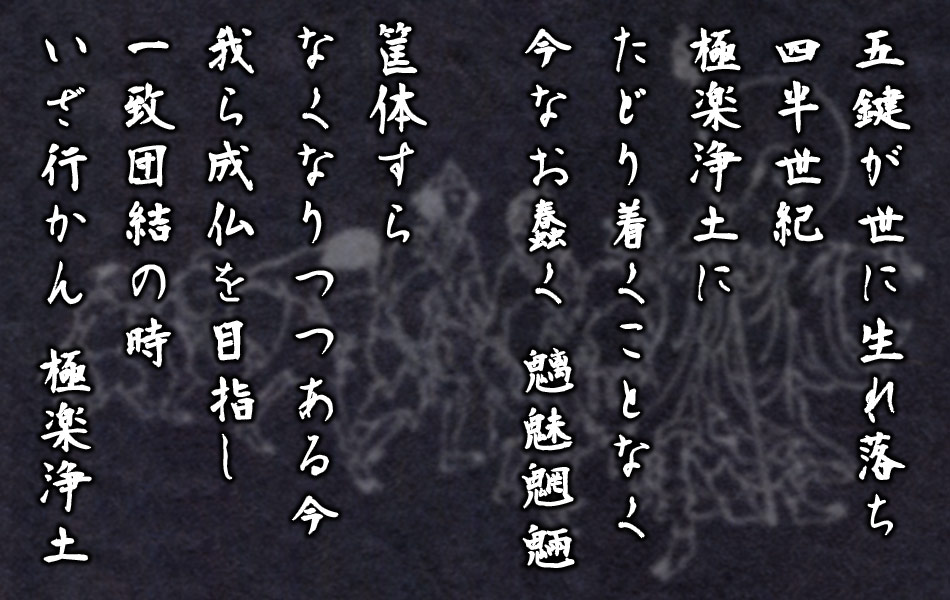 五鍵が世に生れ落ち
四半世紀
極楽浄土に
たどり着くことなく
今なお蠢く　魑魅魍魎
筐体すら
なくなりつつある今
我ら成仏を目指し
一致団結の時
いざ行かん　極楽浄土